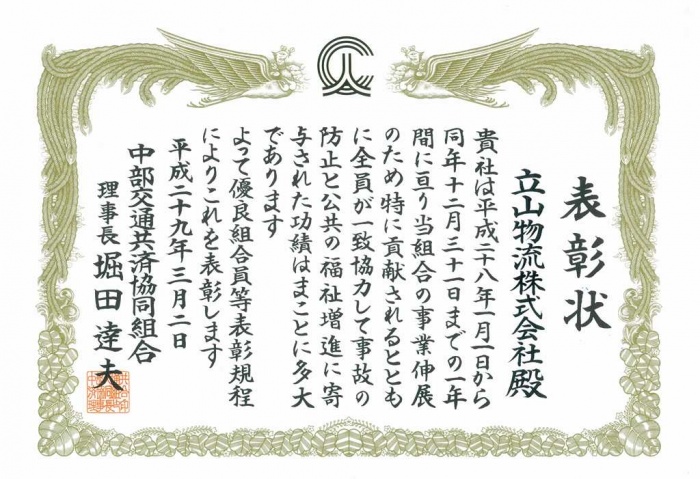 表彰状
立山物流株式会社殿
貴社は平成二十八年一月一日から
同年十二月三十一日までの一年
間に亘り当組合の事業伸展
のため特に貢献されるととも
に全員が一致協力して事故の
防止と公共の福祉増進に寄
与された功績はまことに多大
であります
よって優良組合員等表彰規程
によりこれを表彰します
平成二十九年三月二日
中部交通共済協同組合
理事長 堀田達夫